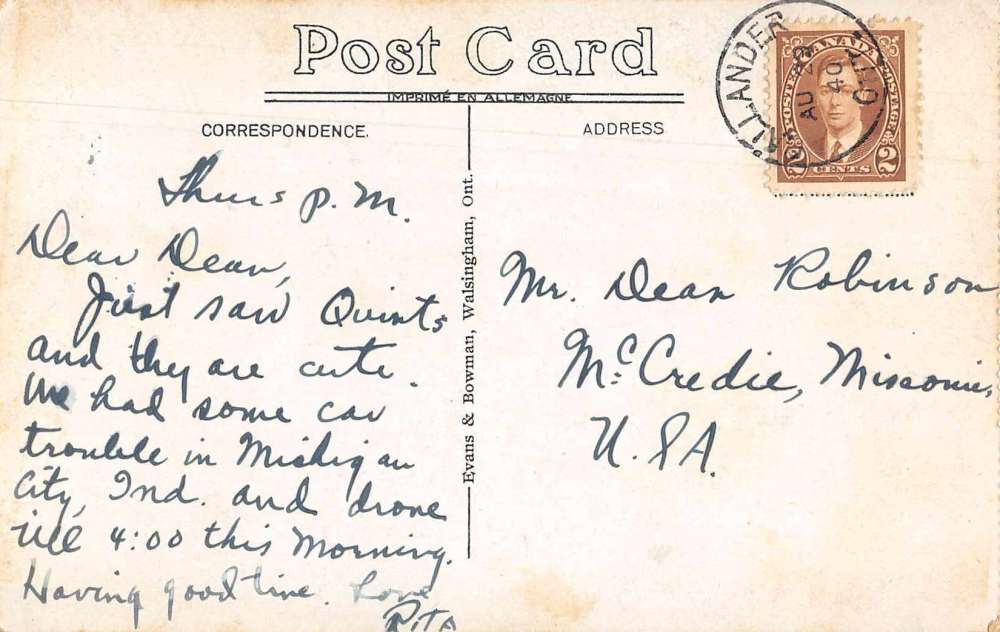 Post Card
IMPRIMÉ EN ALLEMAGNE
CORRESPONDENCE.
ADDRESS
CALLANDER
AU 29
40
ONT.
CANADA
POSTES POSTAGE
2 2
CENTS
Thurs p.m.
Dear Dean,
Just saw Quints
and they are cute.
We had some car
trouble in Michigan
City, Ind. and drove
till 4:00 this morning.
Having good time. Love
Rita
Evans & Bowman, Walsingham, Ont.
Mr. Dean Robinson
McCredie, Missouri,
U.S.A.